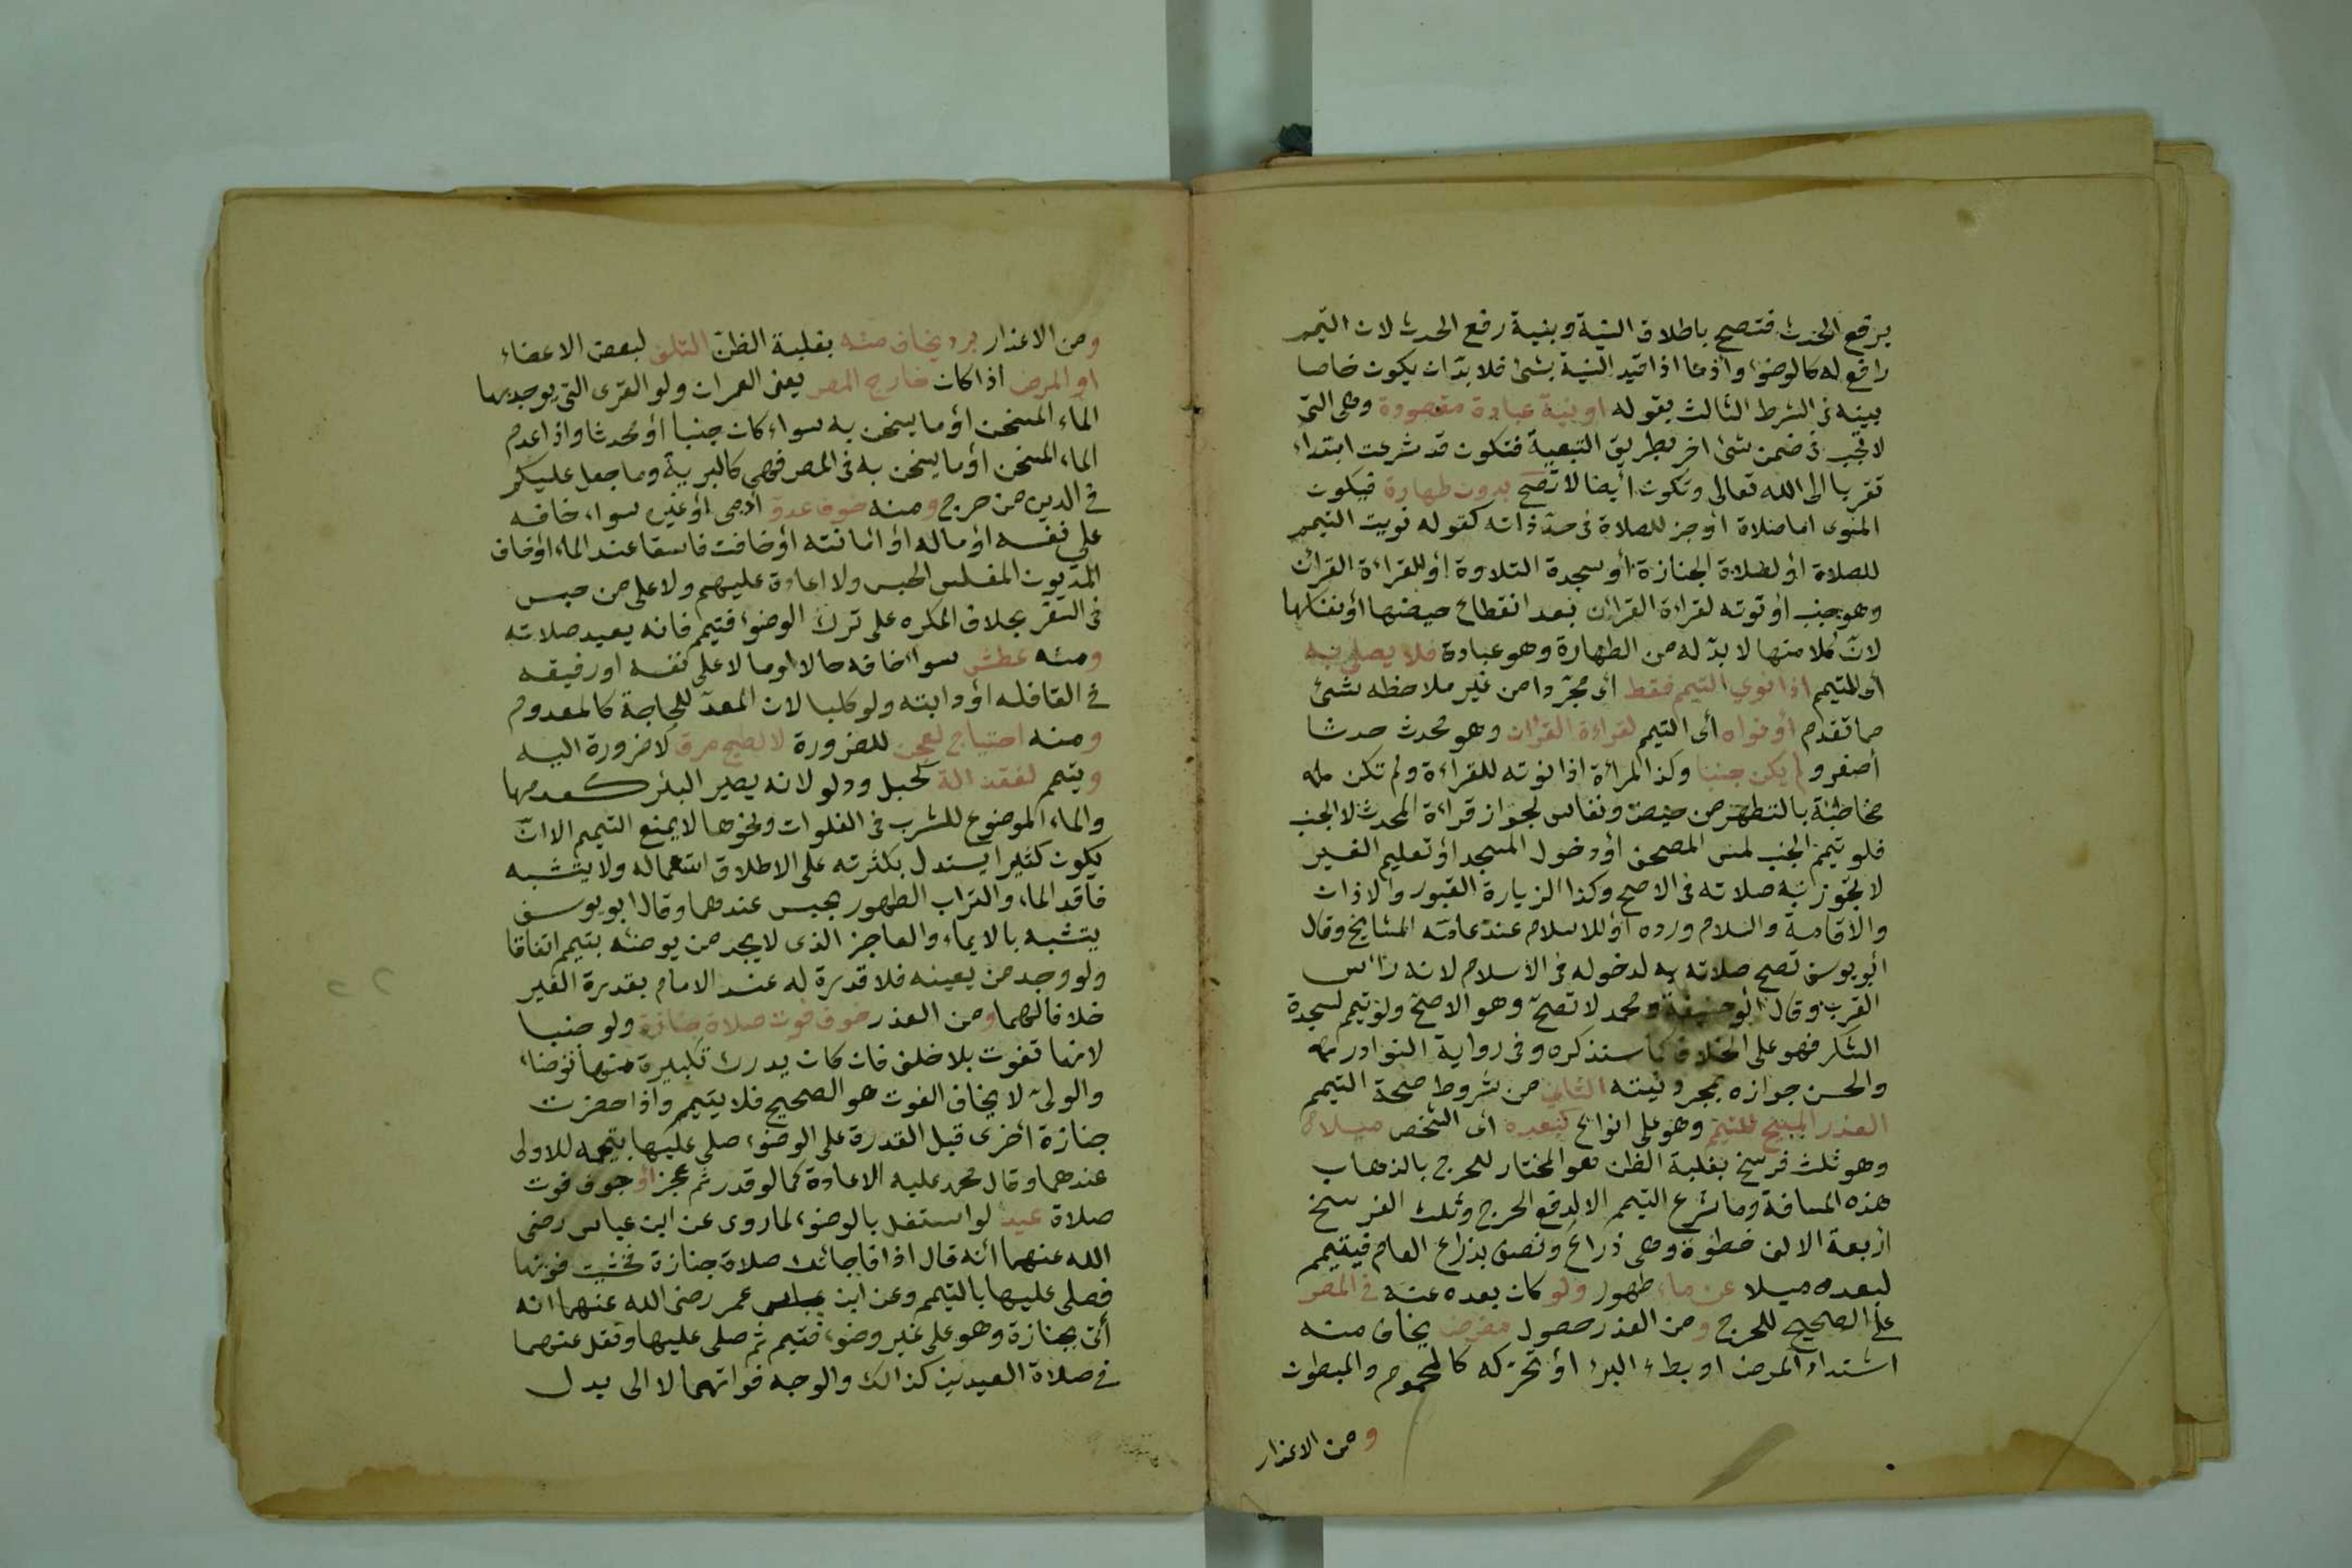 برفع الحدث فتصح باطلاق النية وبنية رفع الحدث لان التيمم
رافع له كالوضوء واذما اذا قيد النية بشئ فلا بدّ ان يكون خاصا
بينه فى الشرط الثالث بقوله او بنية عبادة مقصودة وهى التى
لا تجب فى ضمن شئ اخر بطريق التبعية فتكون قد شرعت ابتداء
تقربا الى الله تعالى وتكون أيضا لا تصح بدون طهارة فيكون
المنوى اما صلاة أو جز للصلاة فى حدّ ذاته كقوله نويت التيمم
للصلاة أو لصلاة الجنازة أو سجدة التلاوة أو للقراءة القرآن
وهو جنب أو نوته لقراءة القرآن بعد انقطاع حيضها أو نفاسها
لانّ كلا منها لا بدّ له من الطهارة وهو عبادة فلا يصلى به
أى المتيمم اذا نوي التيمم فقط أى مجرّدا من غير ملاحظه شئ
مما تقدم أو نواه أى التيمم لقراءة القرآن وهو محدث حدثا
أصغر ولم يكن جنبا وكذا المرأة اذا نوته للقراءة ولم تكن
مخاطبة بالتطهر من حيض ونفاس لجواز قراءة المحدث لا الجنب
فلو تيمم الجنب لمس المصحف أو دخول المسجد أو تعليم الغير
لا تجوز به صلاته فى الاصح وكذا الزيارة القبور والاذان
والاقامة والسلام ورده أو للاسلام عند عامة المشايخ وقال
أبو يوسف تصح صلاته به لدخوله فى الاسلام لانه رأس
القرب وقال أبو حنيفة ومحمد لا تصح وهو الاصح ولو تيمم لسجدة
الشكر فهو على الخلاف كما سنذكره وفى رواية النوادر
والحسن جوازه بمجرد نيته الثانى من شروط صحة التيمم
العذر المبيح للتيمم وهو على انواع كبعده أى الشخص ميلا
وهو ثلث فرسخ بغلبة الظن هو المختار للحرج بالذهاب
هذه المسافة وما شرع التيمم الا لدفع الحرج وثلث الفرسخ
أربعة الاف خطوة وهى ذراع ونصف بذراع العام فيتيمم
لبعده ميلا عن ماء طهور ولو كان بعده عنه فى المصر
على الصحيح للحرج ومن العذر حصول مرض يخاف منه
اشتداد المرض او بطء البرء أو تحركه كالمحموم والمبطون
ومن الاعذار
ومن الاعذار برد يخاف منه بغلبة الظن التلف لبعض الاعضاء
او المرض اذا كان خارج المصر يعنى العمران ولو القرى التى يوجد بها
الماء المسخن أو ما يسخن به سواء كان جنبا أو محدثا واذا عدم
الماء المسخن أو ما يسخن به فى المصر فهى كالبرية وما جعل عليكم
فى الدين من حرج ومنه خوف عدوّ أدمى أو غيره سواء خافه
على نفسه أو ماله أو أمانته أو خافت فاسقا عند الماء أو خاف
المديون المفلس الحبس ولا اعادة عليهم ولا على من حبس
فى السفر بخلاف المكره على ترك الوضوء فتيمم فانه يعيد صلاته
ومنه عطش سواء خافه حالا او مالا على نفسه او رفيقه
فى القافله أو دابته ولو كلبا لان المعدّ للحاجة كالمعدوم
ومنه احتياج لعجن للضرورة لا لطبخ مرق لا ضرورة اليه
ويتيمم لفقد الة كحبل ودلو لانه يصير البئر كعدمها
والماء الموضوع للشرب فى الفلوات ونحوها لا يمنع التيمم الا انّ
يكون كثيرا يستدل بكثرته على الاطلاق استعماله ولا يتشبه
فاقد الماء والتراب الطهور بحبس عندهما وقال ابو يوسف
يتشبه بالايماء والعاجز الذى لا يجد من يوضئه بتيمم اتفاقا
ولو وجد من يعينه فلا قدرة له عند الامام بقدرة الغير
خلافا لهما ومن العذر خوف فوت صلاة جنازة ولو جنبا
لانها تفوت بلا خلف فان كان يدرك تكبيرة منها توضاء
والولىّ لا يخاف الفوت هو الصحيح فلا يتيمم واذا حضرت
جنازة أخرى قبل القدرة على الوضوء صلى عليها بتيممه للاولى
عندهما وقال محمد عليه الاعادة كما لو قدر ثم عجز أو خوف فوت
صلاة عيد لو استغل بالوضوء لما روى عن ابن عباس رضى
الله عنهما أنه قال اذا فاجائك صلاة جنازة فخشيت فوتها
فصلى عليها بالتيمم وعن ابن عمر رضى الله عنهما انه
أتى بجنازة وهو على غير وضوء فتيمم ثم صلى عليها ونقل عنهما
فى صلاة العيدين كذالك والوجه فواتهما لا الى بدل